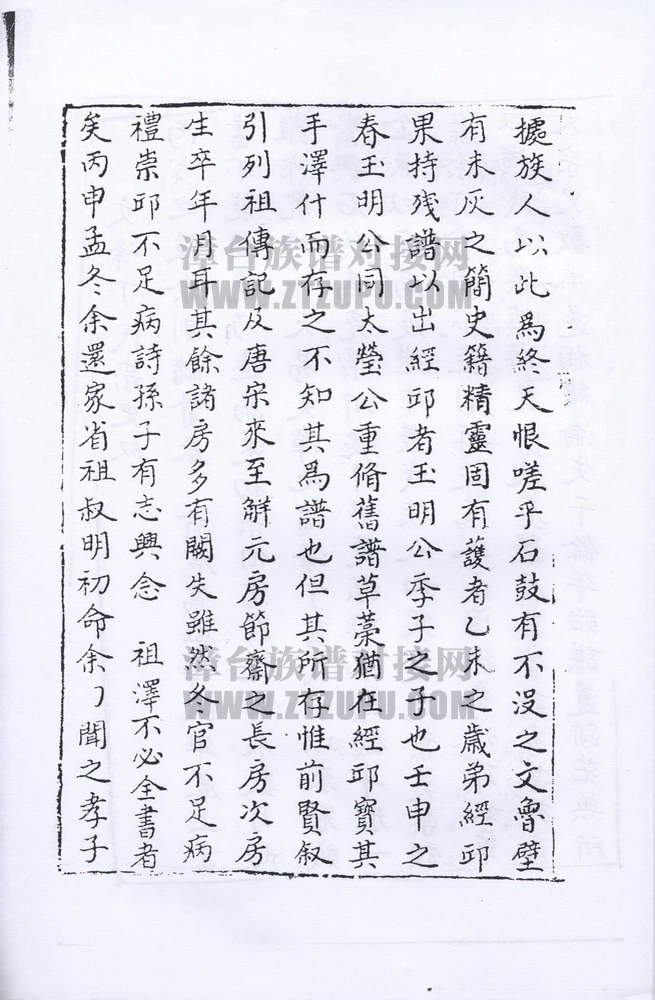 據族人以此爲終天恨嗟乎石鼓有不没之文魯壁
有未灰之簡史籍精靈固有護者乙未之歲弟經邱
果持残譜以出經邱者玉明公季子之子也壬申之
春王明公同太瑩公重脩舊譜草藁猶在經邱寶其
手澤什而存之不知其爲譜也但其所存惟前賢叙
引列祖傳記及唐宋來至觧元房節齋之長房次房
生卒年月耳其餘諸房多有闕失雖然冬官不足病
禮崇邱不足病詩孫子有志興念 祖澤不必全書者
矣丙申孟冬余還家省祖叔明初命余冫聞之孝子
漳台族谱对接网
WWW.ZTZUPU.COM
漳台族谱对接网
WWW.ZTZUPU.COM